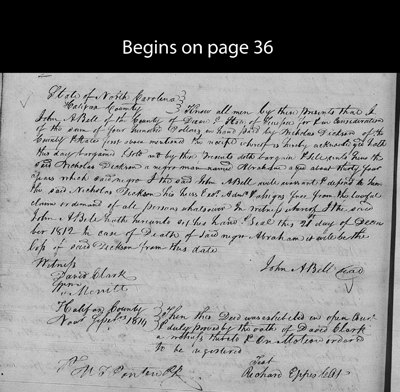 Begins on page 36
State of North Carolina
Halifax County Know all men by these presents that I
John A Bell of the County of & State of for & in Consideration
of the sum of four hundred Dollars in hand paid by Nicholas Dickson of the
County & State first above the receipt whereof is hereby acknowledged hath
this day bargained & Sold and by these presents doth bargain & Sell unto him the
said Nicholas Dickson a negro man named Abraham aged about thirty four
years which said negro I the said John A Bell will warrant & defend to him
the said Nicholas Dickson his heirs Exet. Adm. & assigns free from the lawful
claim or demand of all persons whatsoever In witness whereof I the said
John A Bell hath hereunto set his hand & Seal this 28 day of Decem
ber 1812 In case of Death of said negro Abraham it will be the
loss of said Dickson from this date
Witness
David Clark John A Bell Seal
Merritt
Halifax County Then this Deed was exhibited in open Court
1814 & duly proved by the oath of David Clark
a witness thereto & On Motion ordered
to be registered
Test
Richard Eppes